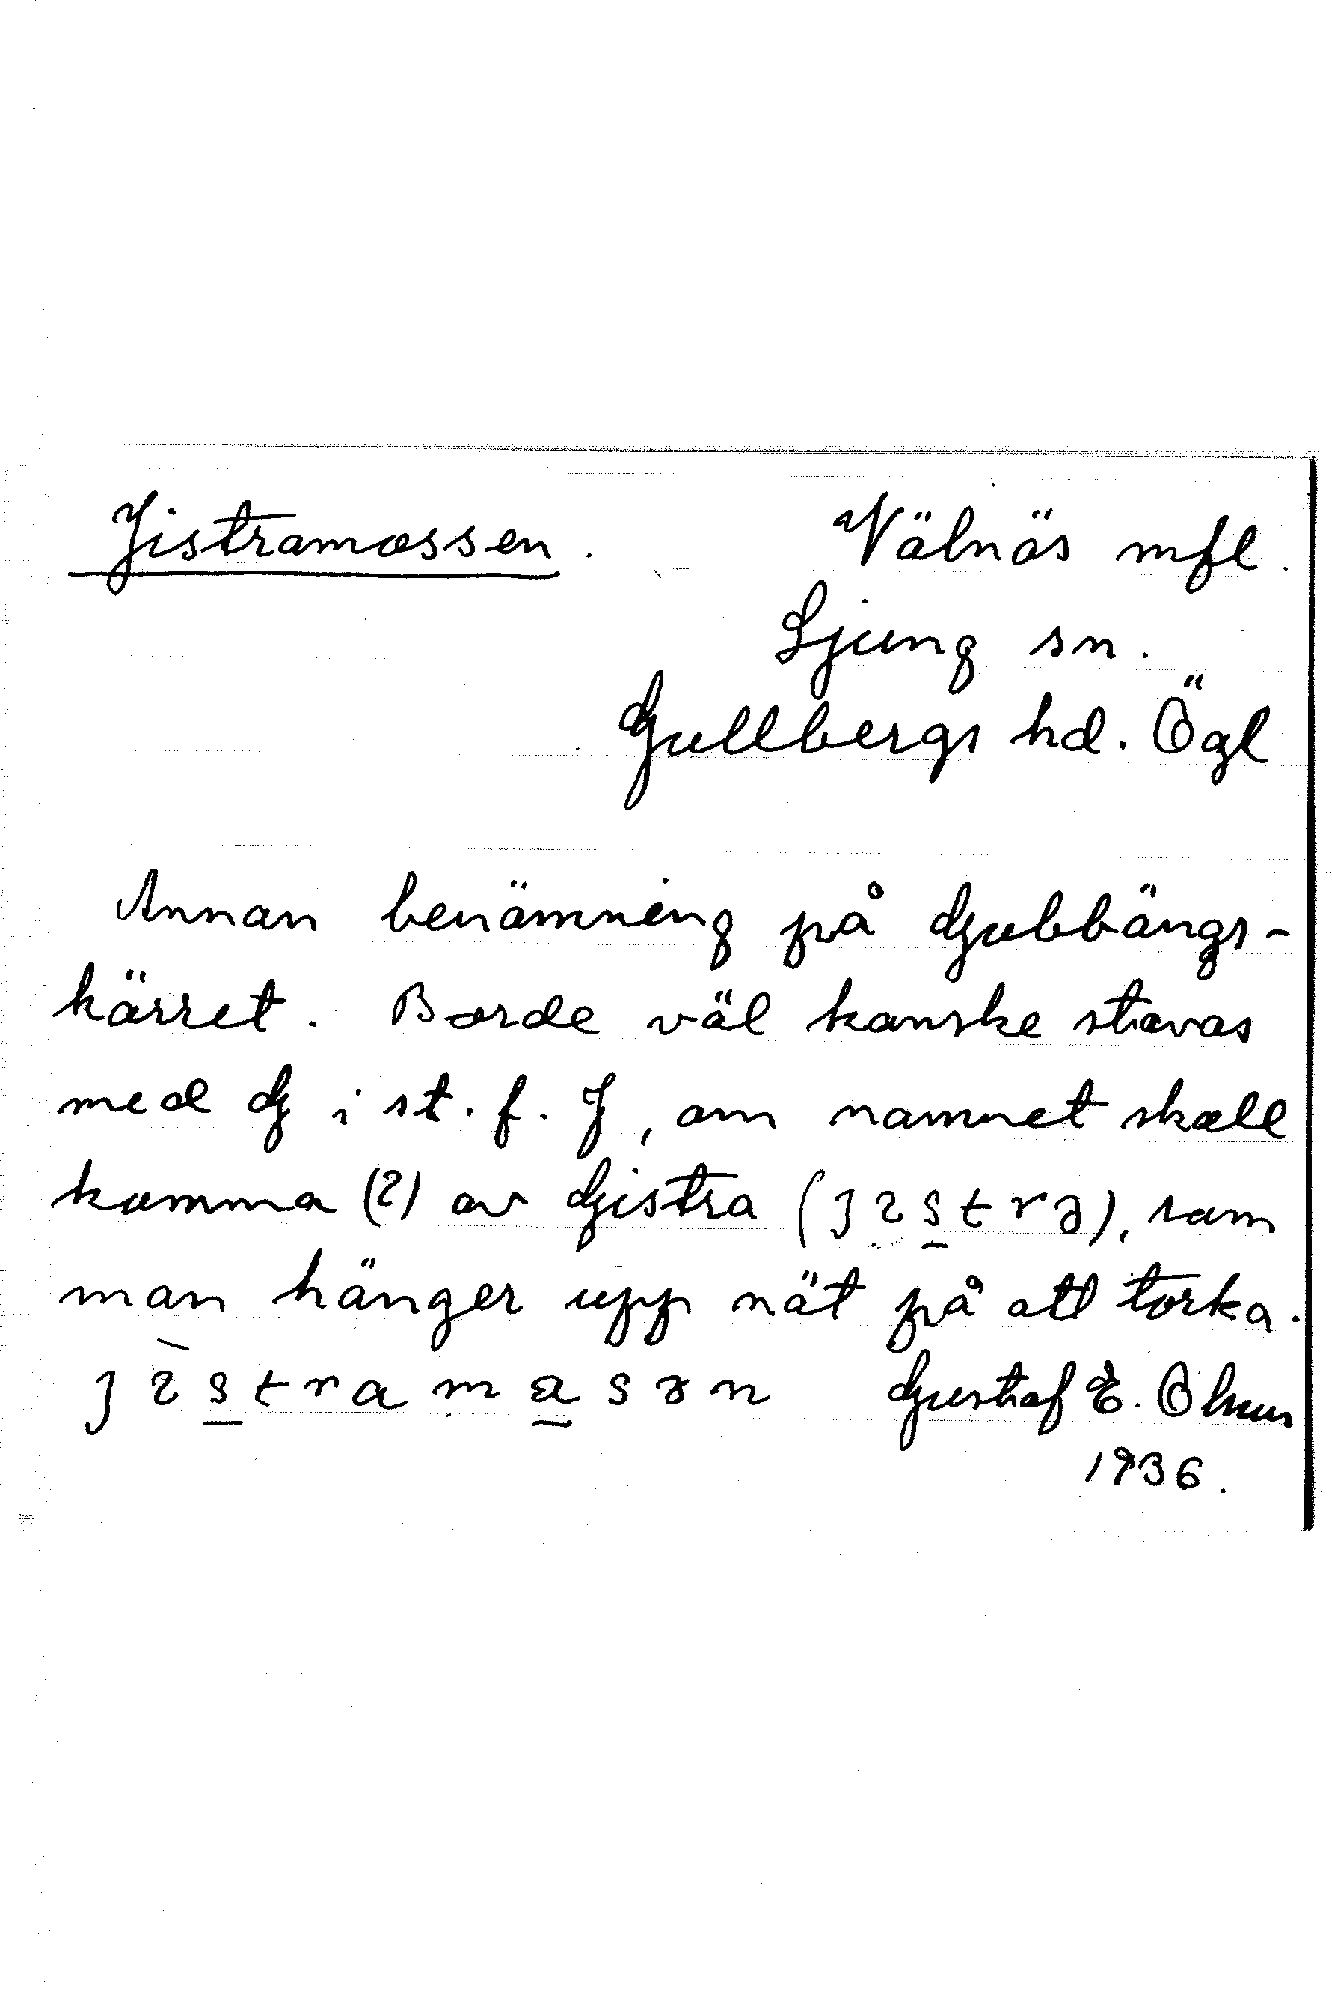 Jistramossen.
Välnäs mfl.
Ljung sn.
Gullbergs hd. Ögl
Annan benämning på Gubbängs-
kärret. Borde väl kanske stavas
med G i st. f. J, om namnet skall
komma (?) av Gistra (), som
man hänger upp nät på att torka.
Gustaf E.
1936.